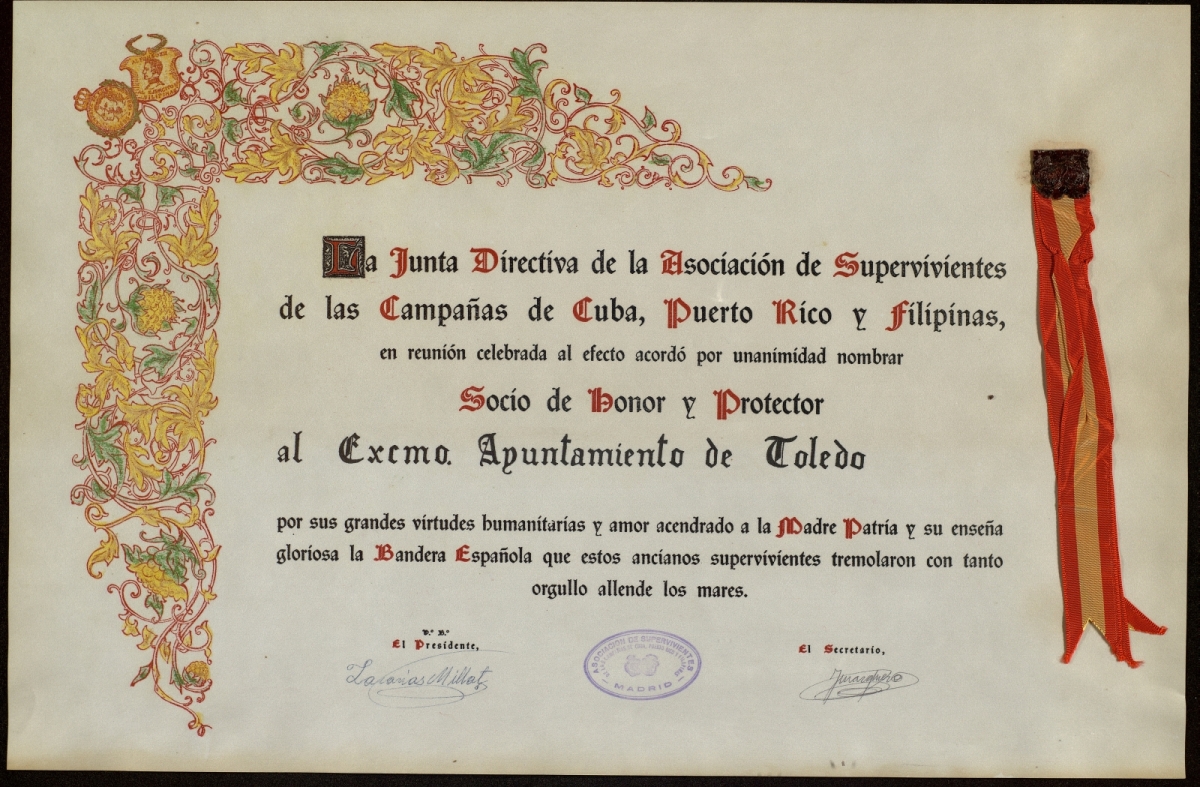 La Junta Directiva de la Asociación de Supervivientes
de las Campañas de Cuba, Puerto Rico y Filipinas,
en reunión celebrada al efecto acordó por unanimidad nombrar
Socio de Honor y Protector
al Excmo. Ayuntamiento de Toledo
por sus grandes virtudes humanitarias y amor acendrado a la Madre Patria y su enseña
gloriosa la Bandera Española que estos ancianos supervivientes tremolaron con tanto
orgullo allende los mares.
V.º B.º
El Presidente,
El Secretario,
ASOCIACION DE SUPERVIVIENTES
MADRID